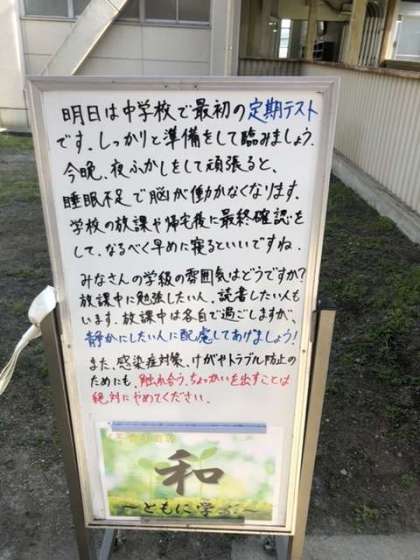 明日は中学校で最初の定期テスト
です。しっかりと準備をして臨みましょう。
今晩、夜ふかしをして頑張ると、
睡眠不足で脳が働かなくなります。
学校の放課や帰宅後に最終確認を
して、なるべく早めに寝るといいですね。
みなさんの学級の雰囲気はどうですか?
放課中に勉強したい人、読書したい人も
います。放課中は各自で過ごしますが、
静かにしたい人に配慮してあげましょう!
また、感染症対策、けがやトラブル防止の
ためにも、触れ合う、ちょっかいを出すことは
絶対にやめてください。
和
～ともに学